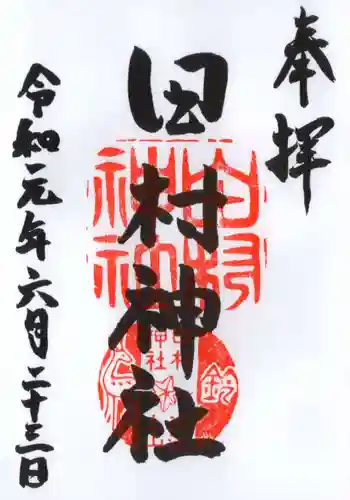 奉拝
田村神社
令和元年六月二十三日
田村
神社